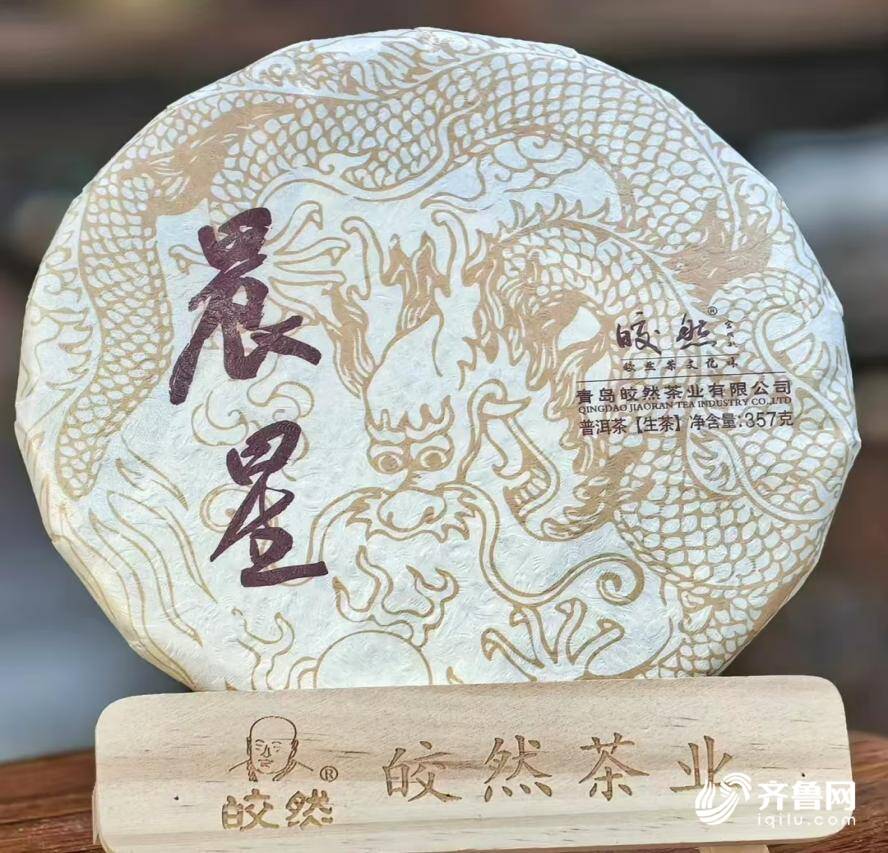 晨星
皎然®
皎然茶文化
青岛皎然茶业有限公司
QINGDAO JIAORAN TEA INDUSTRY CO.,LTD
普洱茶【生茶】净含量:357克
®
皎然
皎然茶业
齐鲁网
iqilu.com